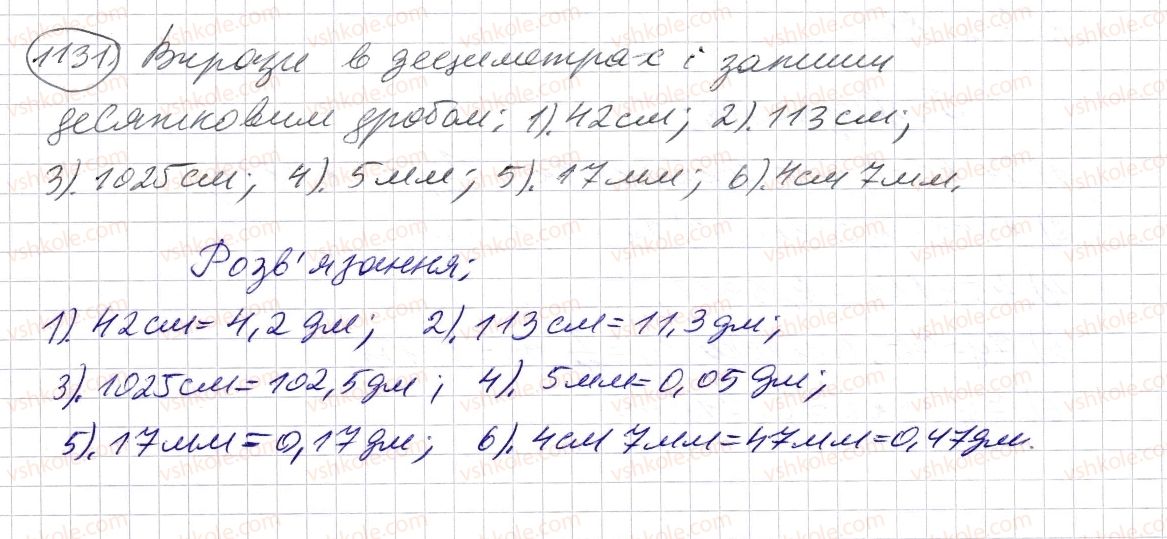 1131. Вирази в дециметрах і запиши
десятковим дробом: 1). 42 см; 2). 113 см;
3). 1025 см; 4). 5 мм; 5). 17 мм; 6). 4 см 7 мм.
Розв'язання:
1). 42 см = 4,2 дм; 2). 113 см = 11,3 дм;
3). 1025 см = 102,5 дм; 4). 5 мм = 0,05 дм;
5). 17 мм = 0,17 дм; 6). 4 см 7 мм = 47 мм = 0,47 дм.